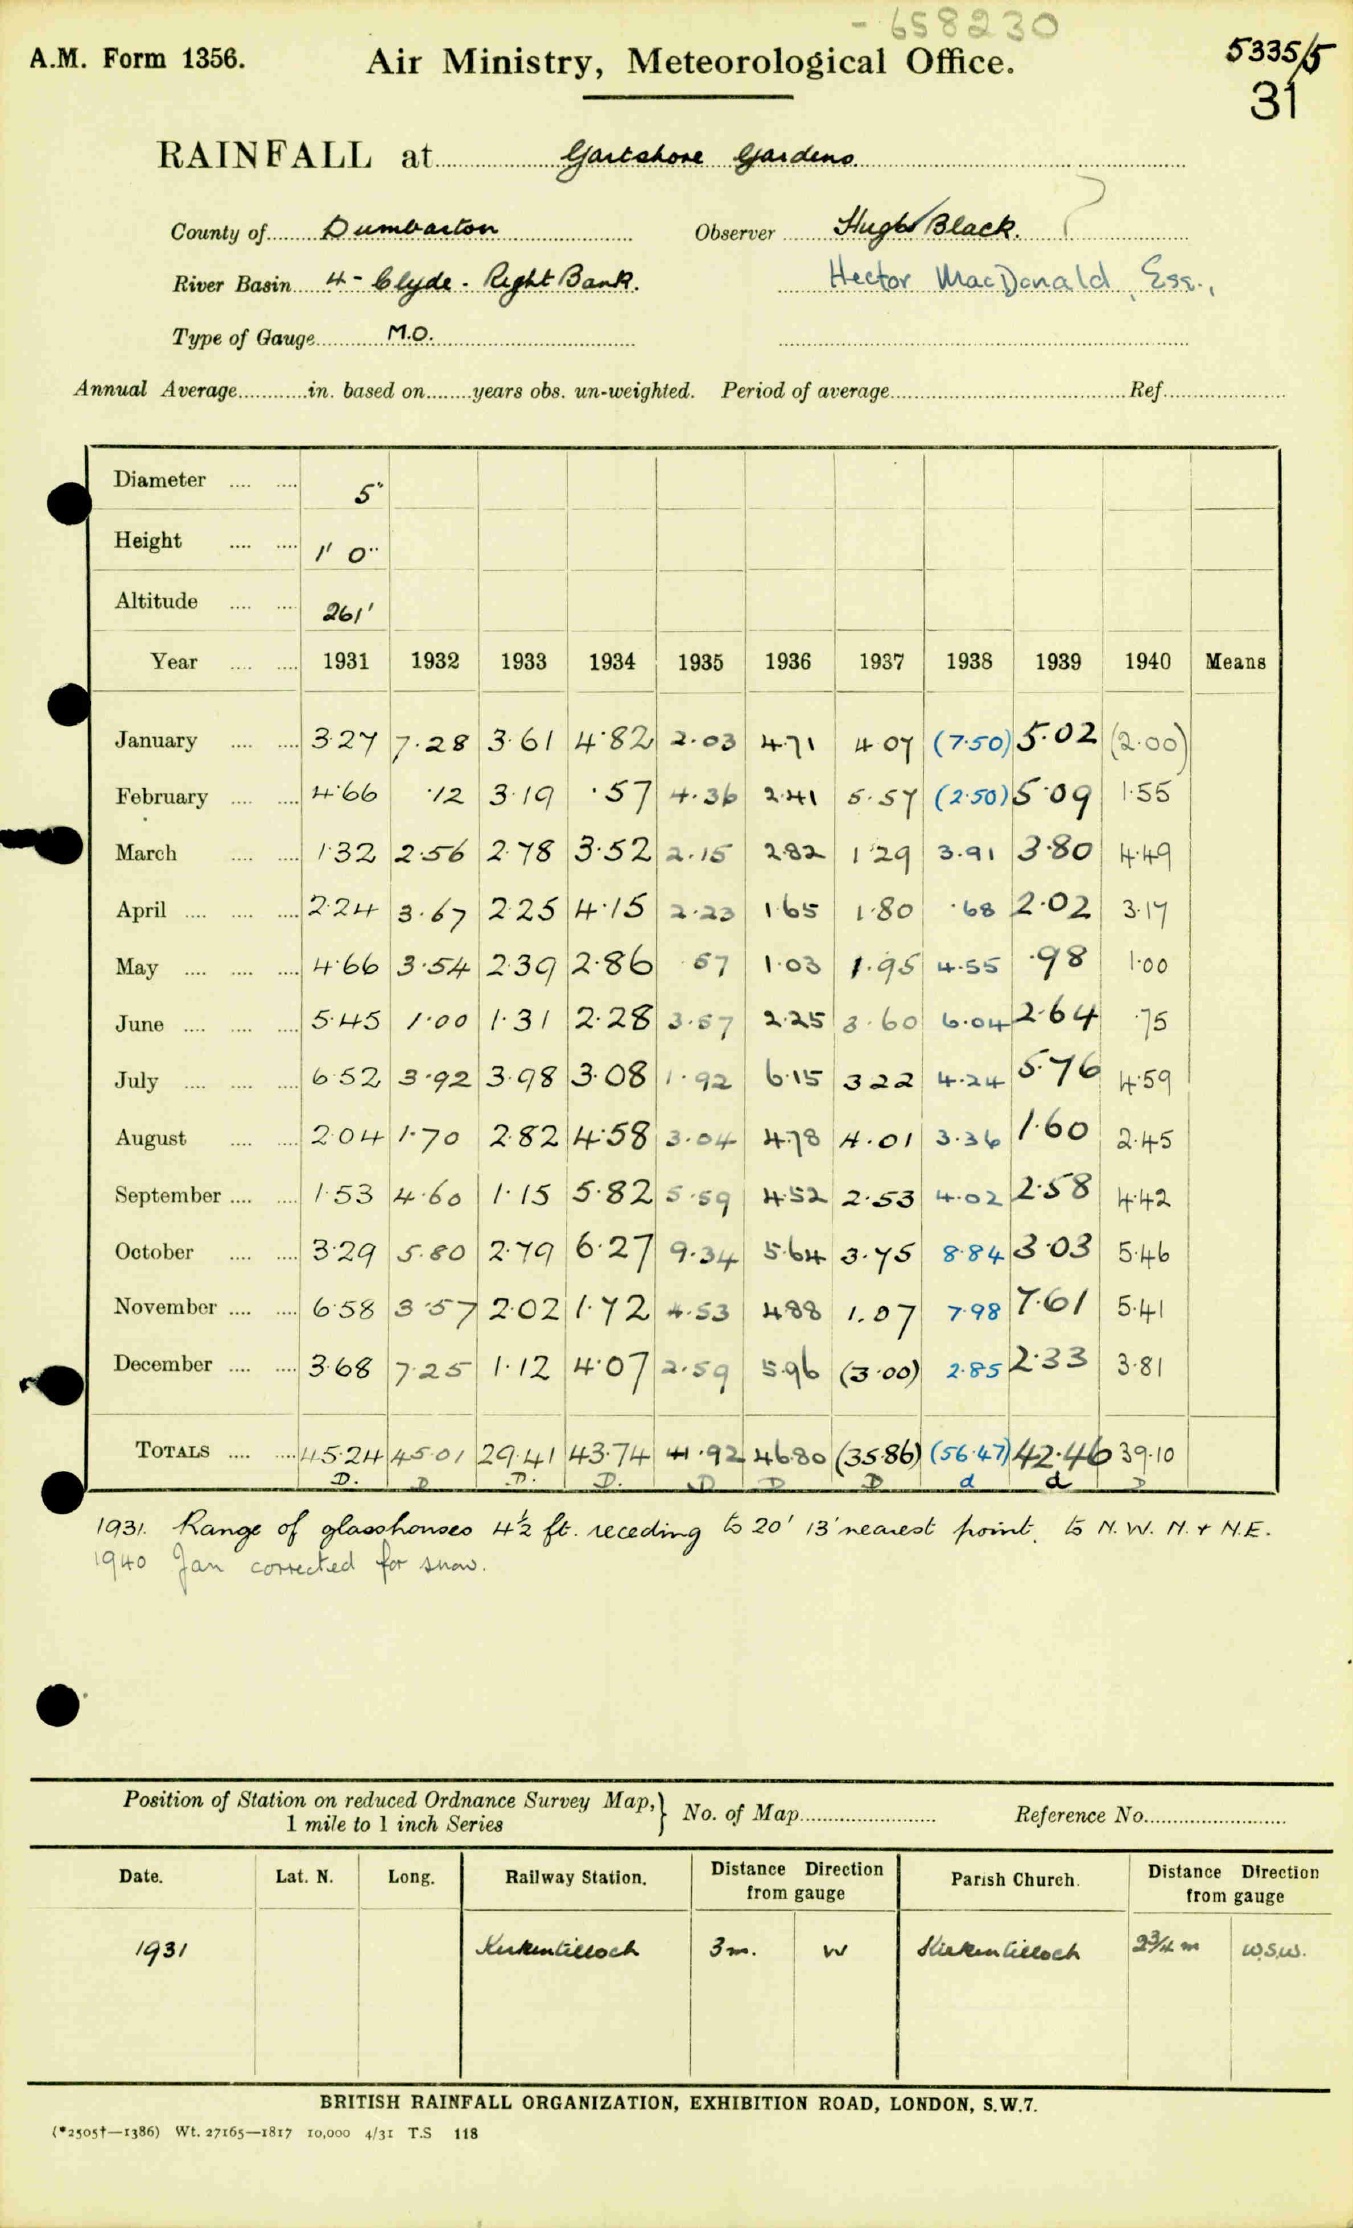 - 658230
A.M. Form 1356.
Air Ministry, Meteorological Office.
5335/5
31
RAINFALL at Gartshore Gardens.
County of Dumbarton Observer Hugh Black. ?
River Basin 4 - Clyde - Right Bank. Hector MacDonald, Esq.,
Type of Gauge M.O.
Annual Average in. based on years obs. un-weighted. Period of average Ref.
Diameter 5"
Height 1' 0"
Altitude 261'
Year 1931 1932 1933 1934 1935 1936 1937 1938 1939 1940 Means
January 3.27 7.28 3.61 4.82 2.03 4.71 4.07 (7.50) 5.02 (2.00)
February 4.66 .12 3.19 .57 4.36 2.41 5.57 (2.50) 5.09 1.55
March 1.32 2.56 2.78 3.52 2.15 2.82 1.29 3.91 3.80 4.49
April 2.24 3.67 2.25 4.15 2.23 1.65 1.80 .68 2.02 3.17
May 4.66 3.54 2.39 2.86 .57 1.03 1.95 4.55 .98 1.00
June 5.45 1.00 1.31 2.28 3.57 2.25 3.60 6.04 2.64 .75
July 6.52 3.92 3.98 3.08 1.92 6.15 3.22 4.24 5.76 4.59
August 2.04 1.70 2.82 4.58 3.04 4.78 4.01 3.36 1.60 2.45
September 1.53 4.60 1.15 5.82 5.59 4.52 2.53 4.02 2.58 4.42
October 3.29 5.80 2.79 6.27 9.34 5.64 3.75 8.84 3.03 5.46
November 6.58 3.57 2.02 1.72 4.53 4.88 1.07 7.98 7.61 5.41
December 3.68 7.25 1.12 4.07 2.59 5.96 (3.00) 2.85 2.33 3.81
TOTALS 45.24 45.01 29.41 43.74 41.92 46.80 (35.86) (56.47) 42.46 39.10
D. D D. D. D D D d d D
1931. Range of glasshouses 4½ ft. receding to 20' 13' nearest point. to N.W. N. + N.E.
1940 Jan corrected for snow.
Position of Station on reduced Ordnance Survey Map, 1 mile to 1 inch Series } No. of Map Reference No.
Date. Lat. N. Long. Railway Station. Distance Direction from gauge Parish Church. Distance Direction from gauge
1931 Kirkintilloch 3 m. W Kirkintilloch 2¾ m W.S.W.
BRITISH RAINFALL ORGANIZATION, EXHIBITION ROAD, LONDON, S.W.7.
(*2505†—1386) Wt. 27165—1817 10,000 4/31 T.S 118